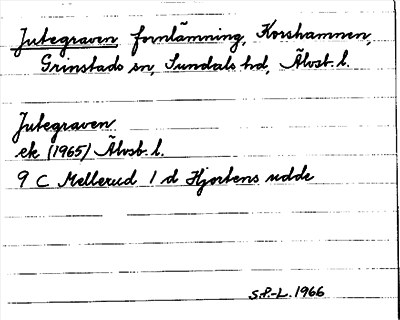 Jutegraven fornlämning, Korshamnen,
Grinstads sn, Sundals hd, Älvsb. l.
Jutegraven
ek (1965) Älvsb. l.
9 C Mellerud 1 d Hjortens udde
S.P.-L. 1966